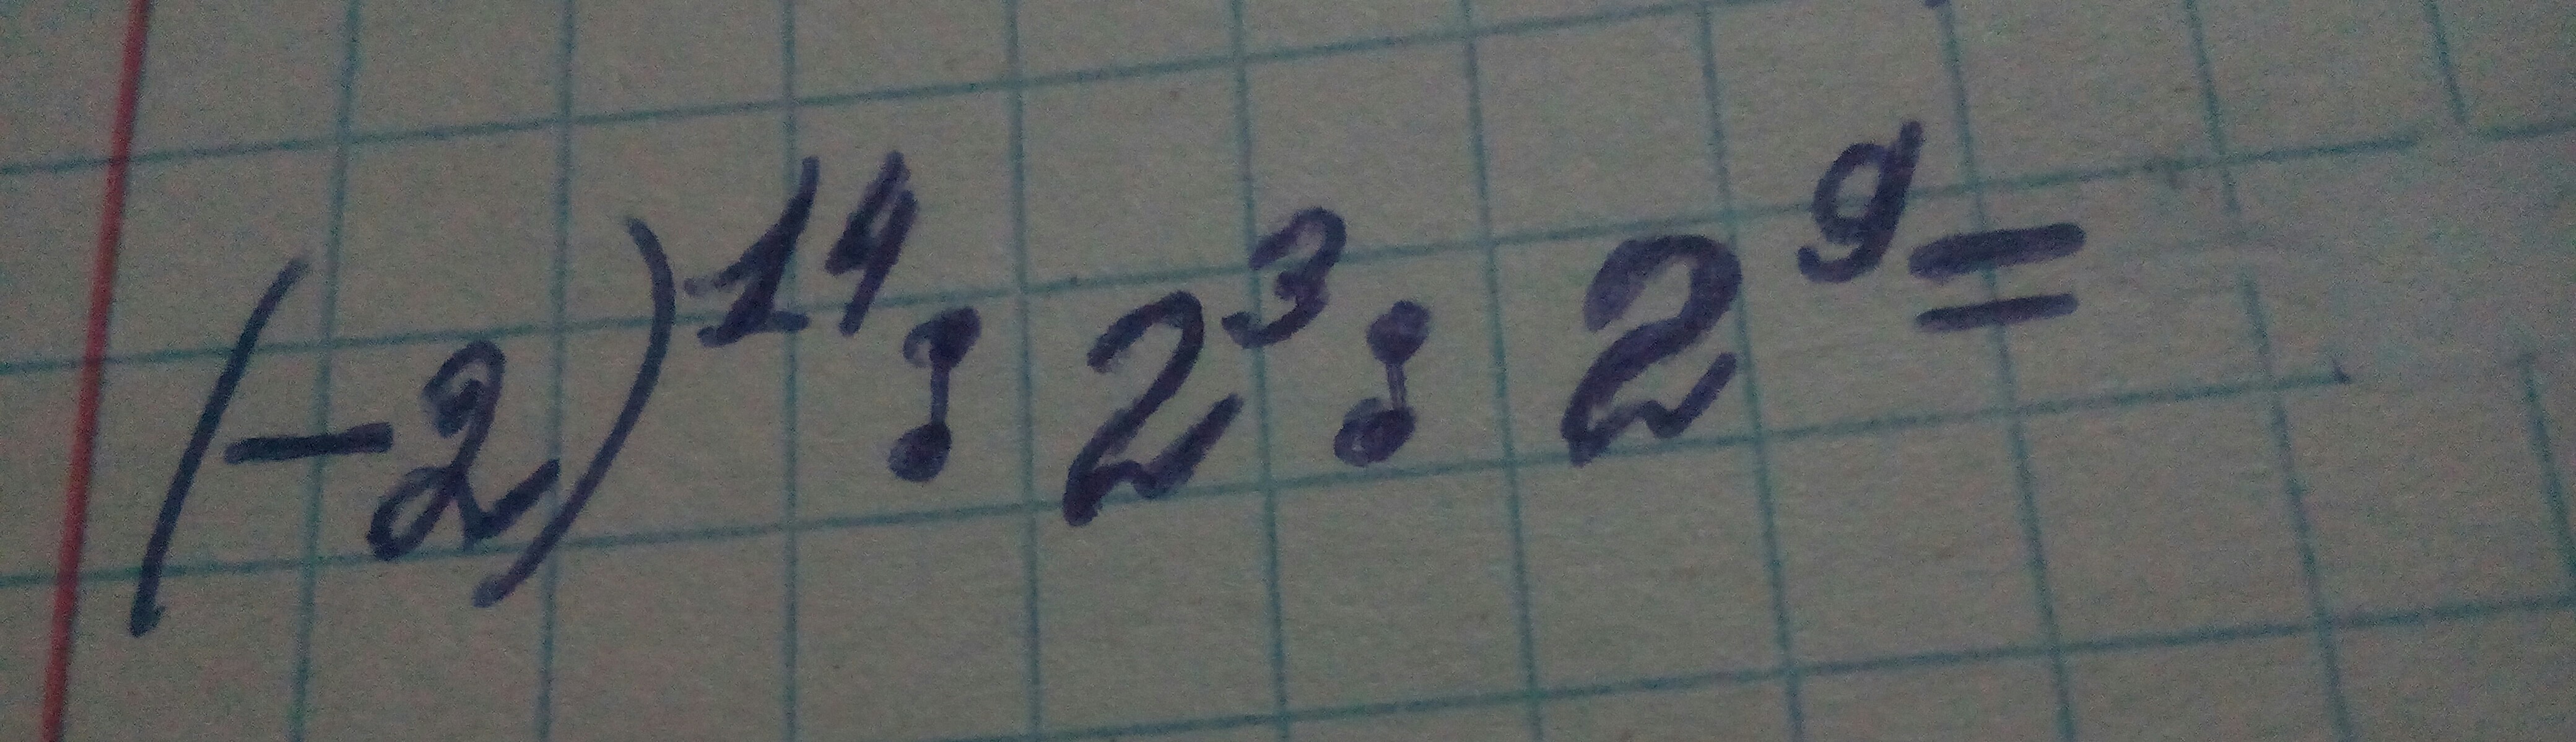 (-2)¹⁴ : 2³ : 2⁹ =